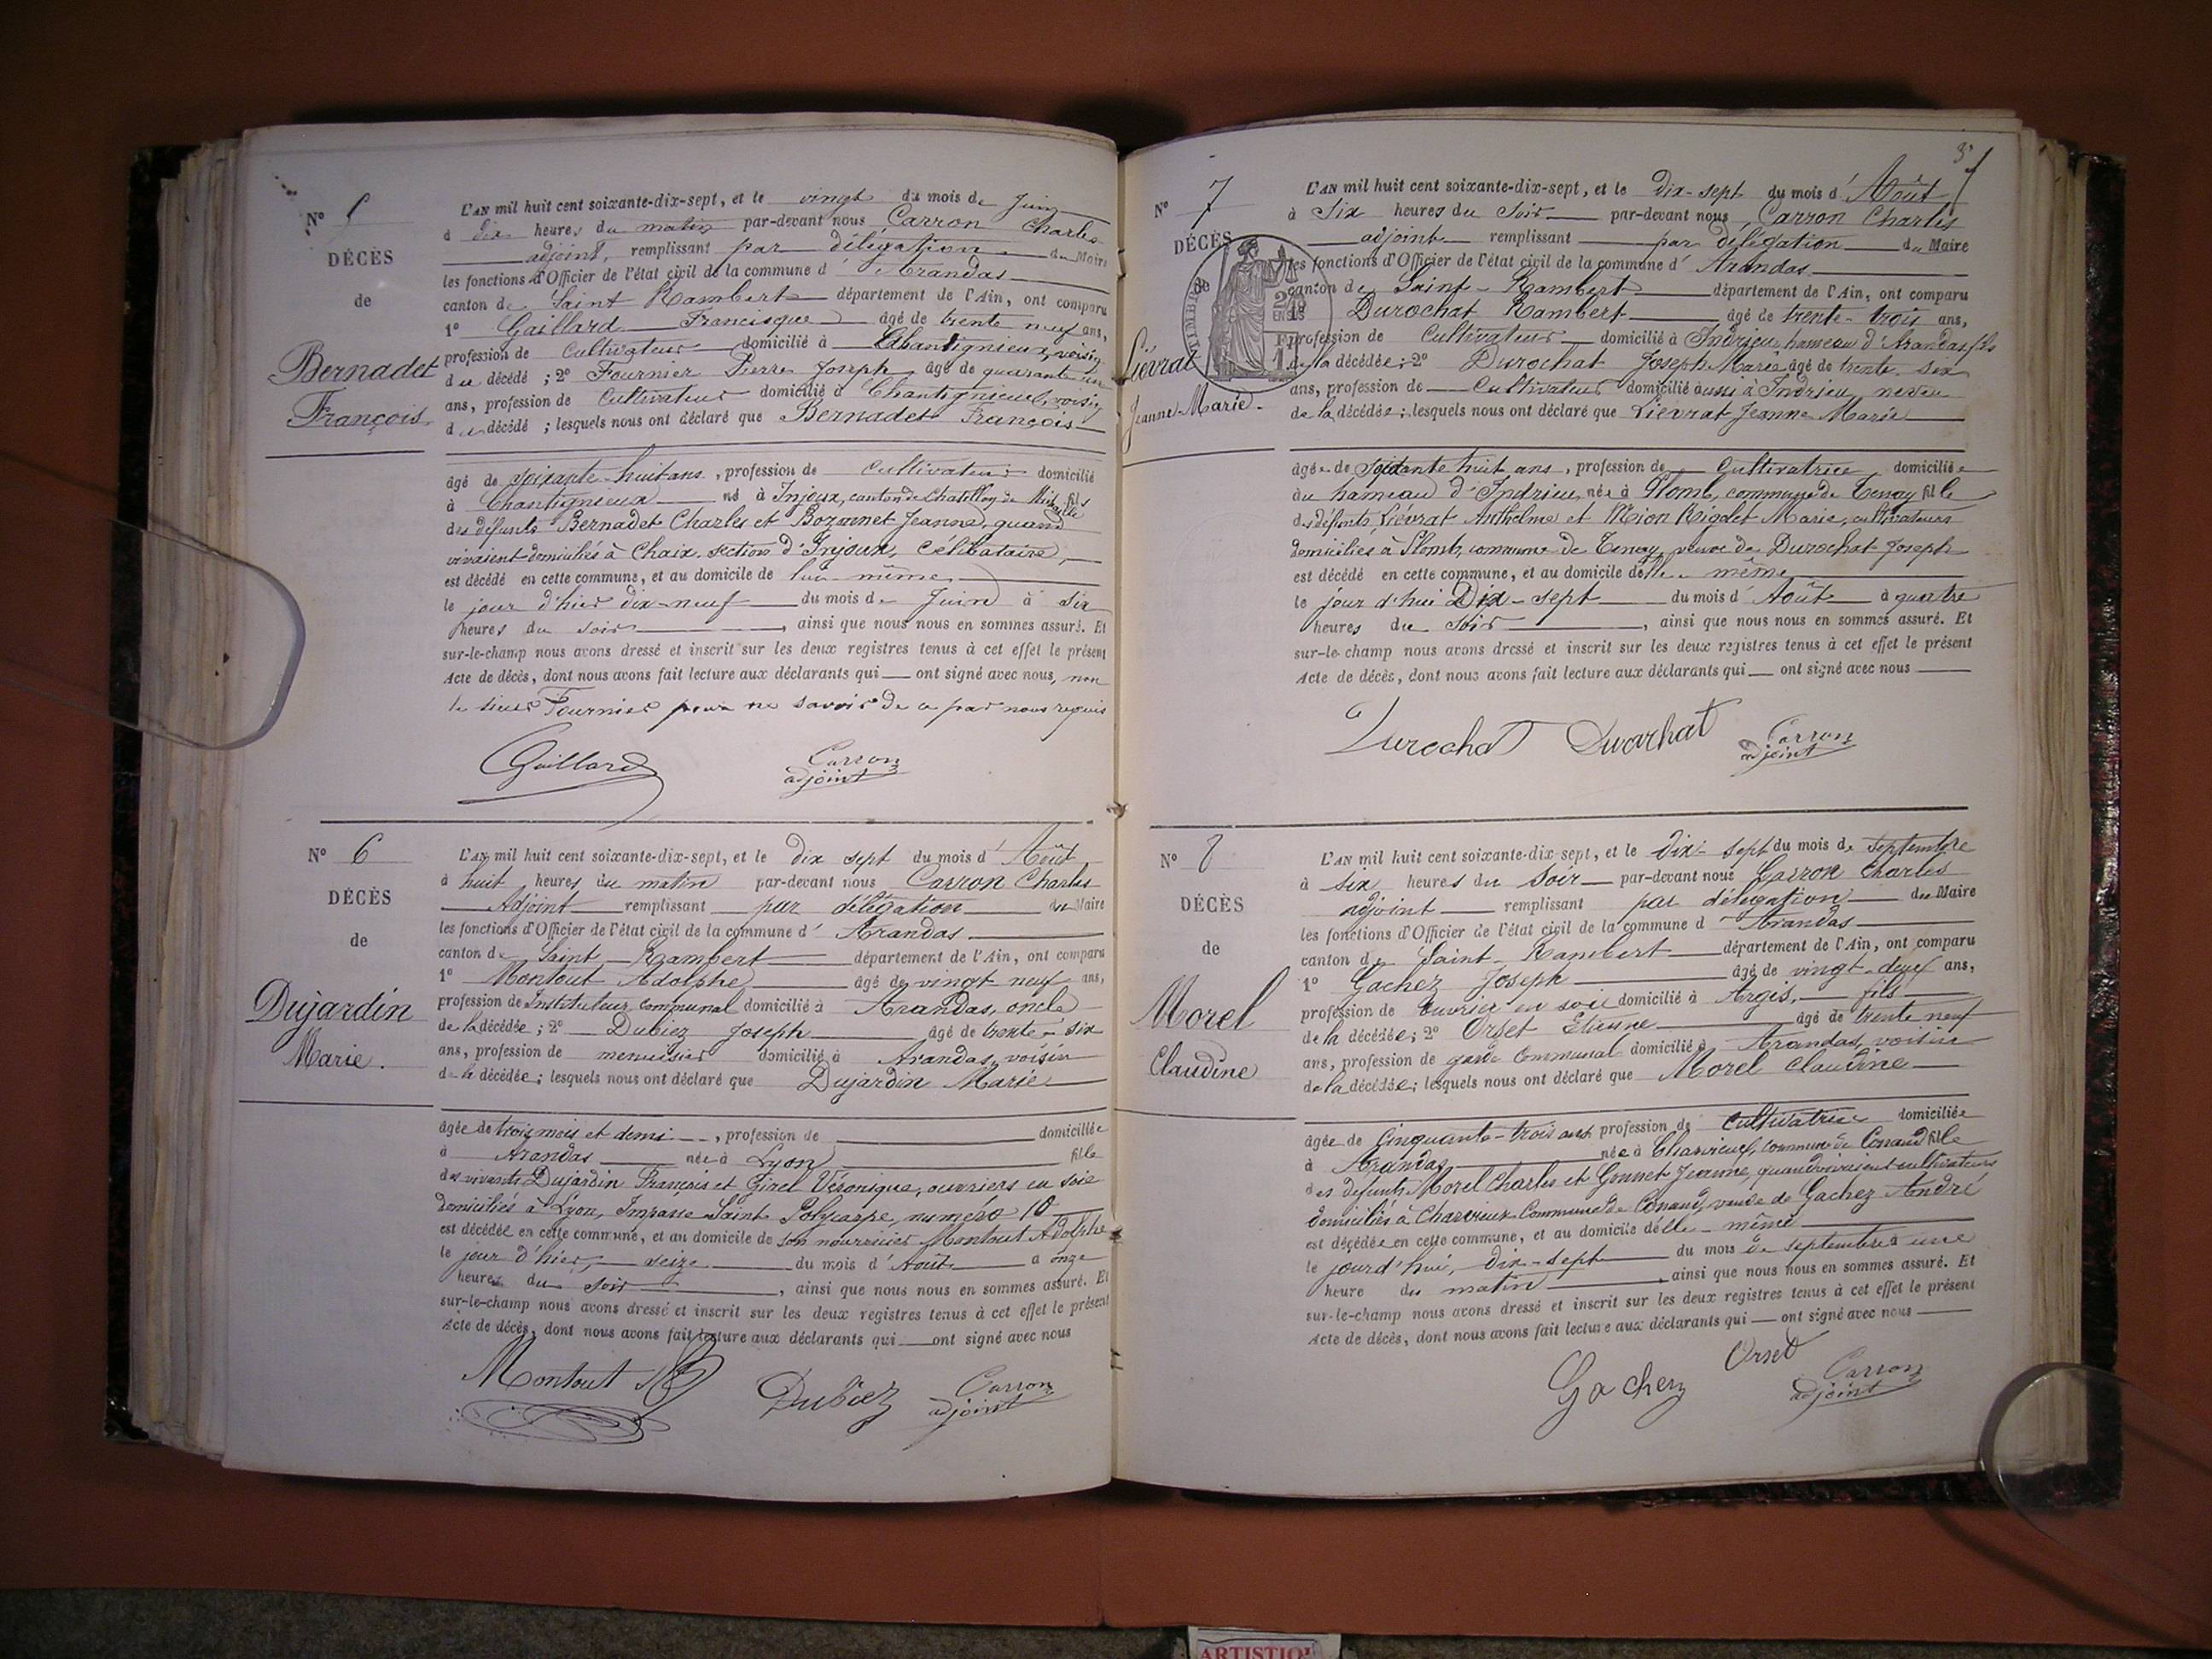 Nº 5
DÉCÈS
de
Bernadet
François.
L'AN mil huit cent soixante-dix-sept, et le vingt du mois de Juin
à dix heures du matin par-devant nous Carron Charles
adjoint, remplissant par délégation du Maire
les fonctions d'Officier de l'état civil de la commune d' Arandas
canton de Saint Rambert département de l'Ain, ont comparu
1º Gaillard Francisque âgé de trente neuf ans,
profession de Cultivateur domicilié à Chantignieux, voisin
du décédé ; 2º Fournier Pierre Joseph âgé de quarante un
ans, profession de Cultivateur domicilié à Chantignieux, voisin
du décédé ; lesquels nous ont déclaré que Bernadet François
âgé de soixante-huit ans, profession de cultivateur domicilié
à Chantignieux né à Injoux, canton de Chatillon de Michaille fils
des défunts Bernadet Charles et Bozonnet Jeanne, quand
vivaient domiciliés à Chaix, section d'Injoux, Célibataire,
est décédé en cette commune, et au domicile de lui même
le jour d'hier dix-neuf du mois de Juin à six
heures du soir, ainsi que nous nous en sommes assuré. Et
sur-le-champ nous avons dressé et inscrit sur les deux registres tenus à cet effet le présent
Acte de décès, dont nous avons fait lecture aux déclarants qui ont signé avec nous, non
le sieur Fournier pour ne savoir de ce par nous requis
Gaillard Carron
adjoint
Nº 6
DÉCÈS
de
Dujardin
Marie.
L'AN mil huit cent soixante-dix-sept, et le dix sept du mois d' Août
à huit heures du matin par-devant nous Carron Charles
Adjoint remplissant par délégation du Maire
les fonctions d'Officier de l'état civil de la commune d' Arandas
canton de Saint Rambert département de l'Ain, ont comparu
1º Montout Adolphe âgé de vingt neuf ans,
profession de Instituteur communal domicilié à Arandas, oncle
de la décédée ; 2º Dubiez Joseph âgé de trente-six
ans, profession de menuisier domicilié à Arandas, voisin
de la décédée ; lesquels nous ont déclaré que Dujardin Marie
âgée de trois mois et demi, profession de domiciliée
à Arandas née à Lyon fille
des vivants Dujardin François et Girel Véronique, ouvriers en soie
domiciliés à Lyon, Impasse Saint Polycarpe, numéro 10
est décédée en cette commune, et au domicile de son nourricier Montout Adolphe
le jour d'hier, seize du mois d' Août à onze
heures du soir, ainsi que nous nous en sommes assuré. Et
sur-le-champ nous avons dressé et inscrit sur les deux registres tenus à cet effet le présent
Acte de décès, dont nous avons fait lecture aux déclarants qui ont signé avec nous
Montout Dubiez Carron
adjoint
3
Nº 7
DÉCÈS
de
Liévrat
Jeanne Marie.
L'AN mil huit cent soixante-dix-sept, et le dix-sept du mois d' Août
à Six heures du Soir par-devant nous, Carron Charles
adjoint remplissant par délégation du Maire
les fonctions d'Officier de l'état civil de la commune d' Arandas
canton de Saint-Rambert département de l'Ain, ont comparu
1º Durochat Rambert âgé de trente-trois ans,
profession de Cultivateur domicilié à Indrieu, hameau d'Arandas fils
de la décédée ; 2º Durochat Joseph Marie âgé de trente-six
ans, profession de Cultivateur domicilié aussi à Indrieu, neveu
de la décédée ; lesquels nous ont déclaré que Liévrat Jeanne Marie
âgée de soixante huit ans, profession de Cultivatrice domiciliée
au hameau d'Indrieu, née à Plomb, commune de Tenay fille
des défunts, Liévrat Anthelme et Mion Rigolet Marie, cultivateurs
domiciliés à Plomb, commune de Tenay, veuve de Durochat Joseph
est décédé en cette commune, et au domicile d'elle même
le jour d'hui Dix-sept du mois d' Août à quatre
heures du Soir, ainsi que nous nous en sommes assuré. Et
sur-le-champ nous avons dressé et inscrit sur les deux registres tenus à cet effet le présent
Acte de décès, dont nous avons fait lecture aux déclarants qui ont signé avec nous
Durochat Durochat Carron
adjoint
Nº 8
DÉCÈS
de
Morel
Claudine
L'AN mil huit cent soixante-dix-sept, et le dix-sept du mois de Septembre
à six heures du Soir par-devant nous Carron Charles
adjoint remplissant par délégation du Maire
les fonctions d'Officier de l'état civil de la commune d' Arandas
canton de Saint-Rambert département de l'Ain, ont comparu
1º Gachez Joseph âgé de vingt-deux ans,
profession de ouvrier en soie domicilié à Argis, fils
de la décédée ; 2º Orset Etienne âgé de trente neuf
ans, profession de garde communal domicilié à Arandas, voisin
de la décédée ; lesquels nous ont déclaré que Morel Claudine
âgée de Cinquante-trois ans profession de cultivatrice domiciliée
à Arandas née à Charvieux, commune de Conand fille
des défunts Morel Charles et Gonnet Jeanne, quand vivaient cultivateurs
domiciliés à Charvieux Commune de Conand, veuve de Gachez André
est décédée en cette commune, et au domicile d'elle-même
le jourd'hui, dix-sept du mois de septembre à une
heure du matin, ainsi que nous nous en sommes assuré. Et
sur-le-champ nous avons dressé et inscrit sur les deux registres tenus à cet effet le présent
Acte de décès, dont nous avons fait lecture aux déclarants qui ont signé avec nous
Gachez Orset Carron
adjoint